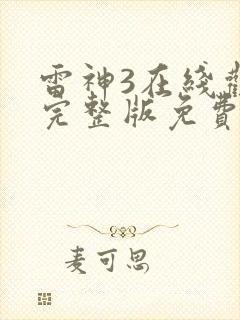 雷神3在线
完整版免費
麦可思